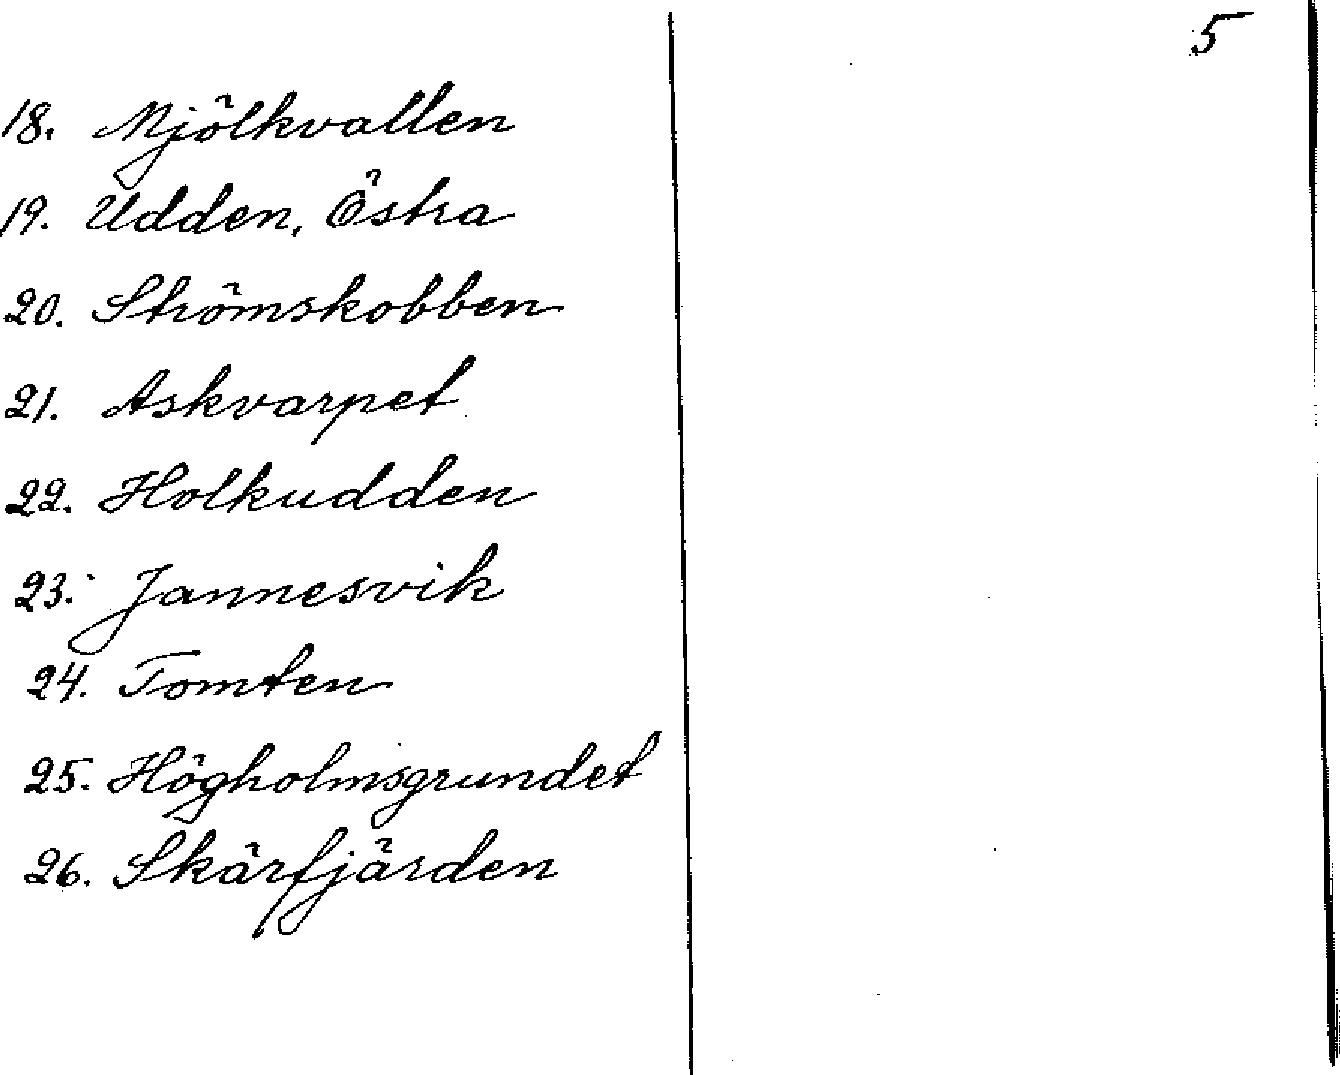 5
18. Mjölkvallen
19. Udden, Östra
20. Strömskobben
21. Askvarpet
22. Holkudden
23. Jannesvik
24. Tomten
25. Högholmsgrundet
26. Skärfjärden